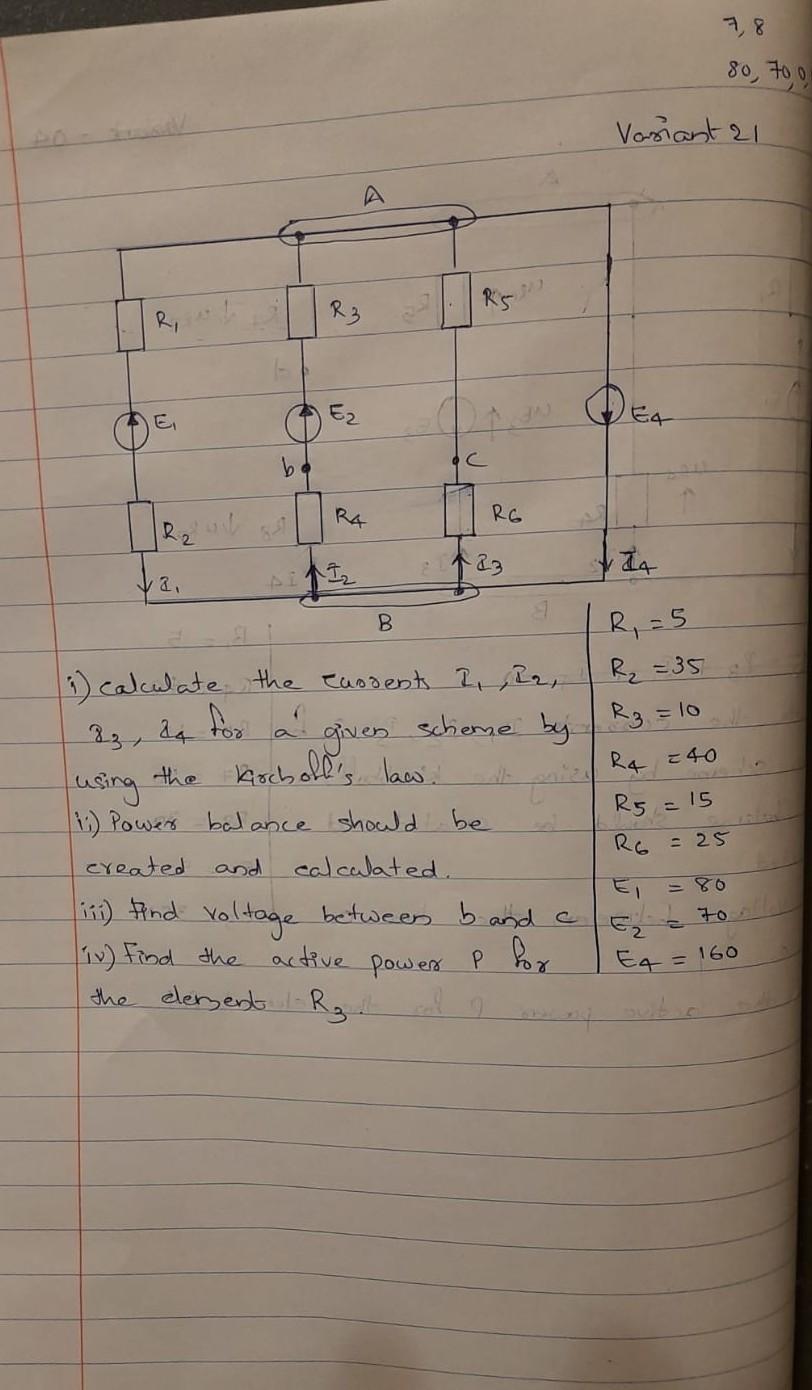 7, 8
80, 70, 0,
Variant 21
A
R1
R3
R5
E1
E2
E4
b
c
R2
R4
R6
I1
I2
I3
I4
B
i) calculate the currents I1, I2,
I3, I4 for a given scheme by
using the Kirchoff's law.
ii) Power balance should be
created and calculated.
iii) find voltage between b and c
iv) Find the active power P for
the element R3.
R1 = 5
R2 = 35
R3 = 10
R4 = 40
R5 = 15
R6 = 25
E1 = 80
E2 = 70
E4 = 160